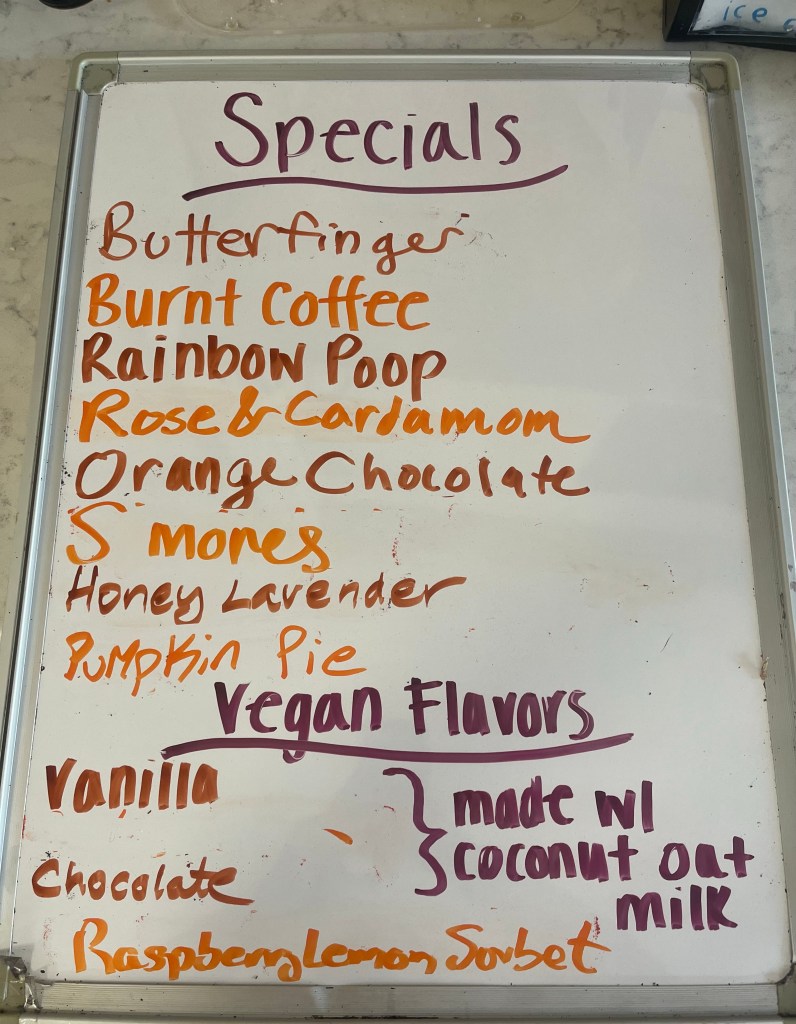 ice
Specials
Butterfinger
Burnt Coffee
Rainbow Poop
Rose & Cardamom
Orange Chocolate
S'mores
Honey Lavender
Pumpkin Pie
Vegan Flavors
Vanilla
Chocolate
} made w/
coconut oat
milk
Raspberry Lemon Sorbet